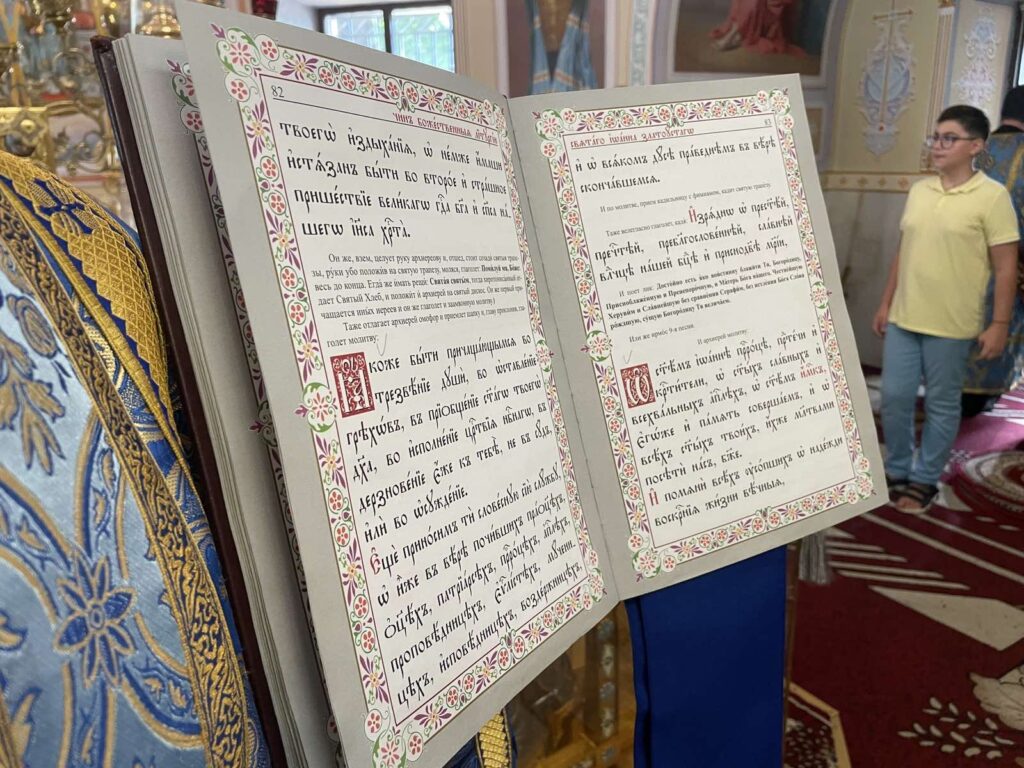 82
Чи́нъ бже́ственныѧ лїтꙋргі́и
твоегѡ̀ и҆здыха́нїѧ, ѡ҆ не́мже и҆мꙋщи
и҆стѧ́занъ бы́ти во второ́е и҆ стра́шное
прише́ствїе вели́кагѡ гд҇а бг҃а и҆ сп҃са на́-
шегѡ і҆и҃са хр҇та̀.
Он же, взем, целует руку архиерею и, отшед, стоит созади святыя трапе-
зы, руки убо положив на святую трапезу, моляся, глаголет: Помилуй мя, Боже:
весь до конца. Егда же имать рещи: Святая святым,
дает Святый Хлеб, и положит и архиерей на святый дискос.
чащается иных иереев и он же глаголет и заамвонную молитву.)
Таже отлагает архиерей омофор и приемлет шапку и,
голет молитву:
Ꙗ҆́коже бы́ти причаща́ющымсѧ во
трезвѣ́нїе дꙋшѝ, во ѡ҆ставле́нїе
грѣхѡ́въ, въ прїѻбще́нїе ст҃а́гѡ твоегѡ̀
дх҃а, во и҆сполне́нїе црⷭ҇твїѧ нбⷭ҇нагѡ, въ
дерзнове́нїе є҆́же къ тебѣ̀, не въ сꙋ́дъ
и҆лѝ во ѡ҆сꙋжде́нїе.
Є҆щѐ прино́симъ тѝ слове́снꙋю сїю̀ слꙋ́жбꙋ,
ѡ҆ и҆́же въ вѣ́рѣ почи́вшихъ пра́ѻц҃ѣхъ,
ѻ҆ц҃ѣ́хъ, патрїа́рсѣхъ, прⷪ҇ро́цѣхъ, а҆пⷭ҇лѣхъ,
проповѣ́дницѣхъ, є҆ѵⷢ҇лі́стѣхъ, мч҃ени-
цѣхъ, и҆сповѣ́дницѣхъ, возде́ржницѣхъ,
свѧта́гѡ і҆ѡа́нна златоꙋ́стагѡ
83
и҆ ѡ҆ всѧ́комъ дꙋ́сѣ пра́веднѣмъ въ вѣ́рѣ
сконча́вшемсѧ.
И по молитве, прием кадильницу с фимиамом, кадит святую трапезу.
Таже велегласно глаголет, кадя: И҆зрѧ́днѡ ѡ҆ прест҃ѣ́й,
пречⷭ҇тѣй, пребл҃гослове́ннѣй, сла́внѣй
влⷣчцѣ на́шей бц҃ѣ и҆ приснодв҃ѣ мр҃і́и,
И поет лик: Достойно есть яко воистинну блажити Тя, Богородицу,
Присноблаженную и Пренепорочную, и Матерь Бога нашего. Честнейшую
Херувим и Славнейшую без сравнения Серафим, без истления Бога Слова
рождшую, сущую Богородицу Тя величаем.
Или же ирмос 9-я песни.
И архиерей молитву:
Ѡ҆ ст҃ѣ́мъ і҆ѡа́ннѣ прⷪ҇ро́цѣ, прⷣте́чи и҆
крⷭ҇ти́тели, ѡ҆ ст҃ы́хъ сла́вныхъ и҆
всехва́льныхъ а҆пⷭ҇лѣхъ, ѡ҆ ст҃ѣ́мъ и҆м҃къ,
є҆гѡ́же и҆ па́мѧть соверша́емъ, и҆ ѡ҆
всѣ́хъ ст҃ы́хъ твои́хъ, и҆́хже мл҃твами
посѣтѝ на́съ, бж҃е.
И҆ помѧнѝ всѣ́хъ ᲂу҆со́пшихъ ѡ҆ наде́жди
воскрⷭ҇нїѧ жи́зни вѣ́чныѧ,